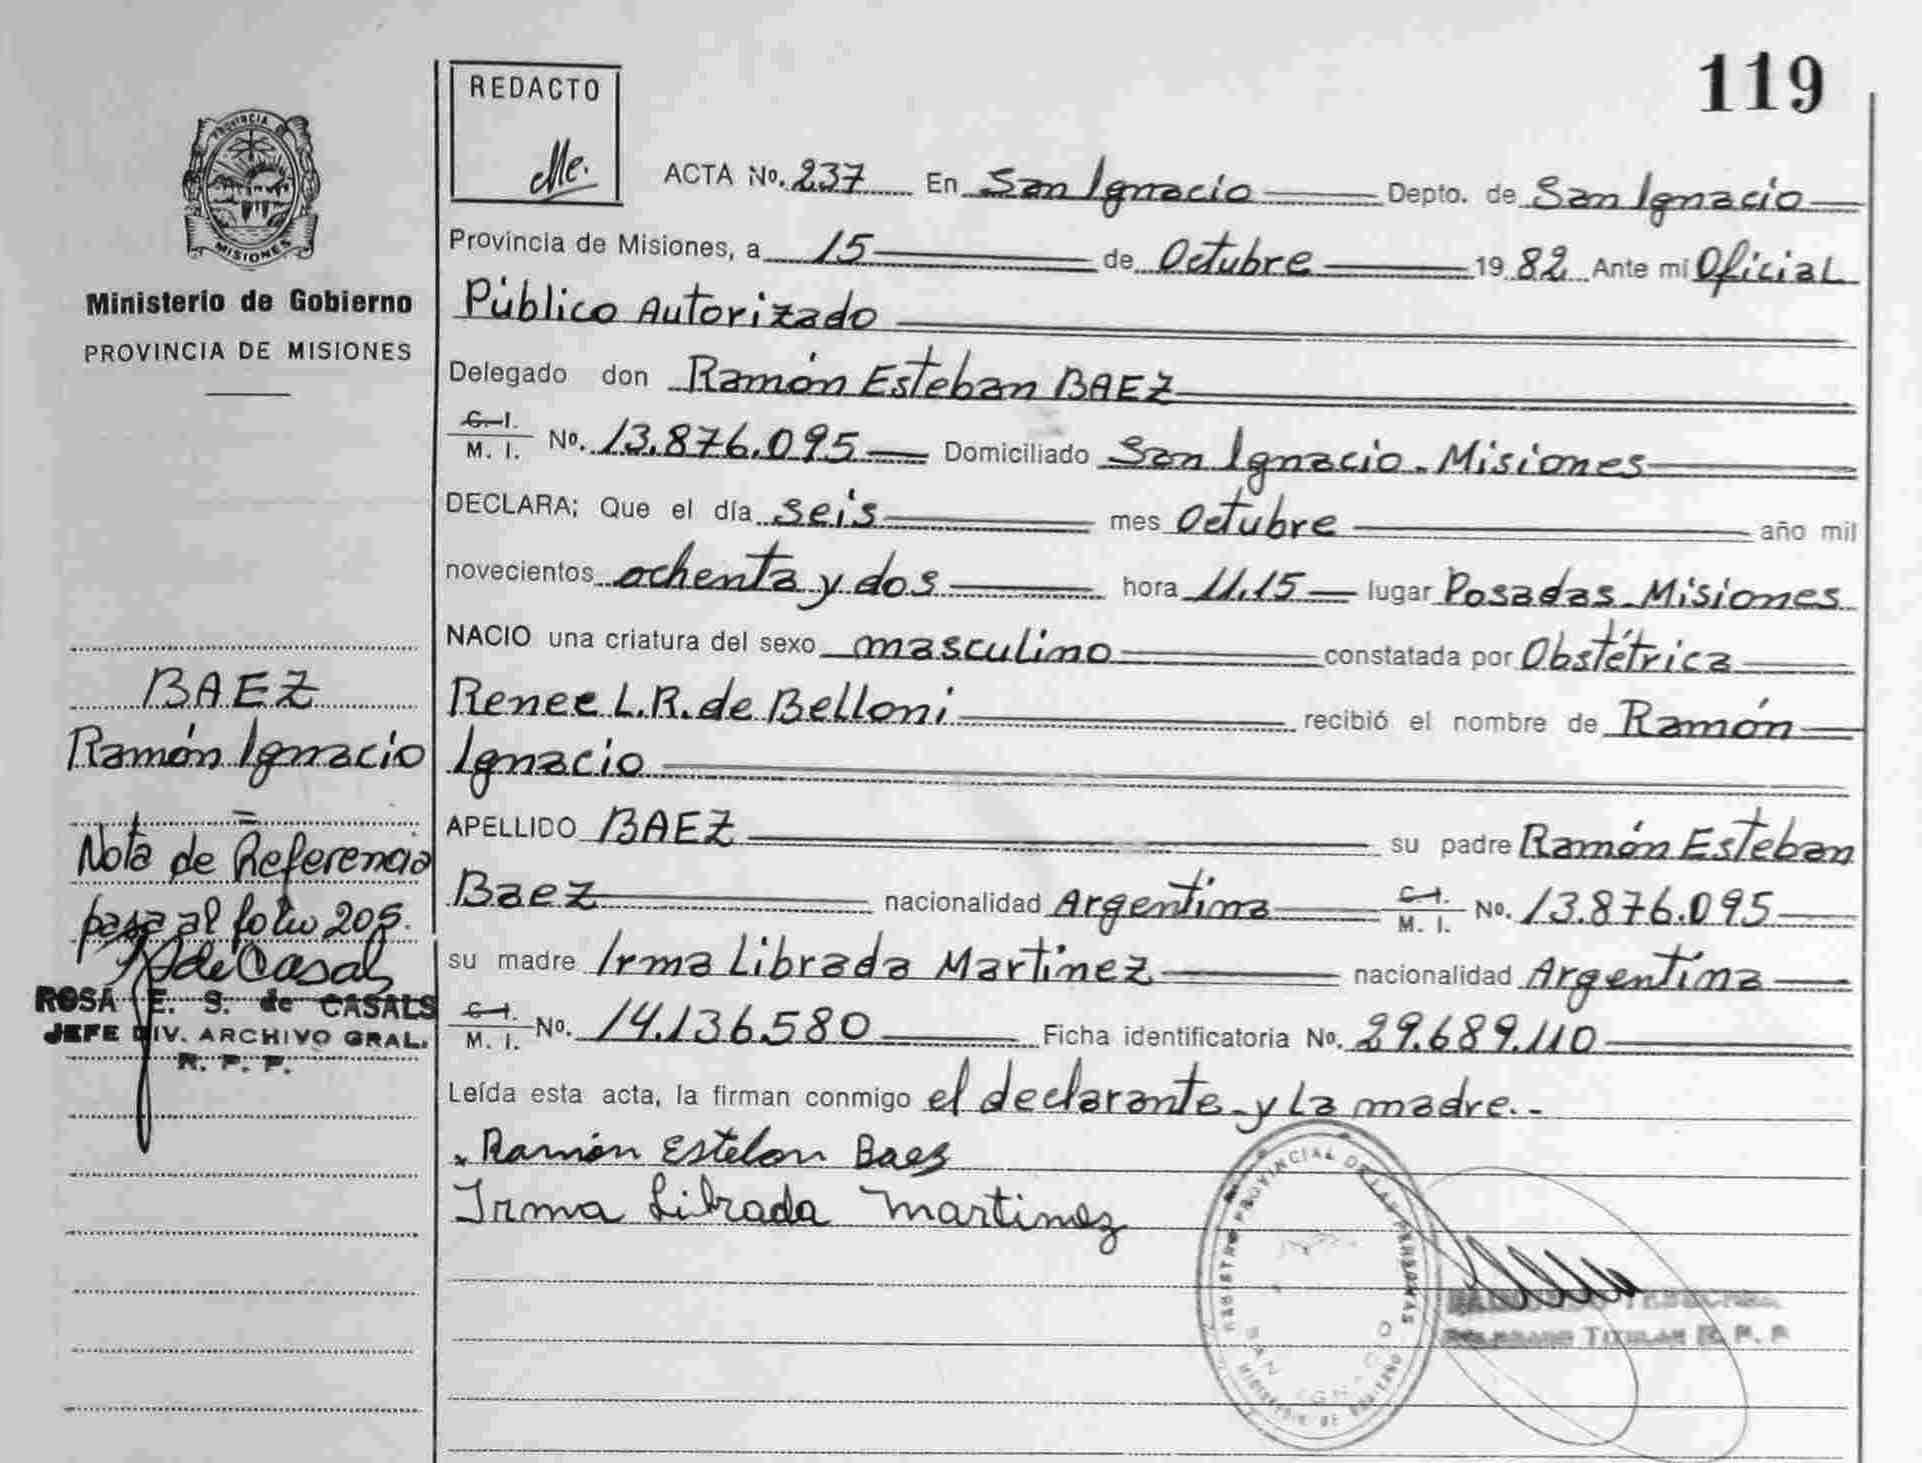 119
REDACTO
Me.
PROVINCIA DE
MISIONES
Ministerio de Gobierno
PROVINCIA DE MISIONES
ACTA No. 237 En San Ignacio Depto. de San Ignacio
Provincia de Misiones, a 15 de Octubre 19 82 Ante mi Oficial
Público Autorizado
Delegado don Ramón Esteban BAEZ
C. I.
M. I. No. 13.876.095 Domiciliado San Ignacio - Misiones
DECLARA; Que el día seis mes Octubre año mil
novecientos ochenta y dos hora 11.15 lugar Posadas - Misiones
NACIO una criatura del sexo masculino constatada por Obstétrica
Renee L.R. de Belloni recibió el nombre de Ramón
Ignacio
APELLIDO BAEZ su padre Ramón Esteban
Baez nacionalidad Argentina C. I. M. I. No. 13.876.095
su madre Irma Librada Martinez nacionalidad Argentina
C. I.
M. I. No. 14.136.580 Ficha identificatoria No. 29.689.110
Leída esta acta, la firman conmigo el declarante y la madre.-
Ramón Esteban Baez
Irma Librada Martinez
BAEZ
Ramón Ignacio
=
Nota de Referencia
pasa al folio 205.
de Casals
ROSA E. S. de CASALS
JEFE DIV. ARCHIVO GRAL.
R. P. P.
REGISTRO PROVINCIAL DE LAS PERSONAS
SAN IGNACIO
MINISTERIO DE GOBIERNO
TITULAR R. P. P.